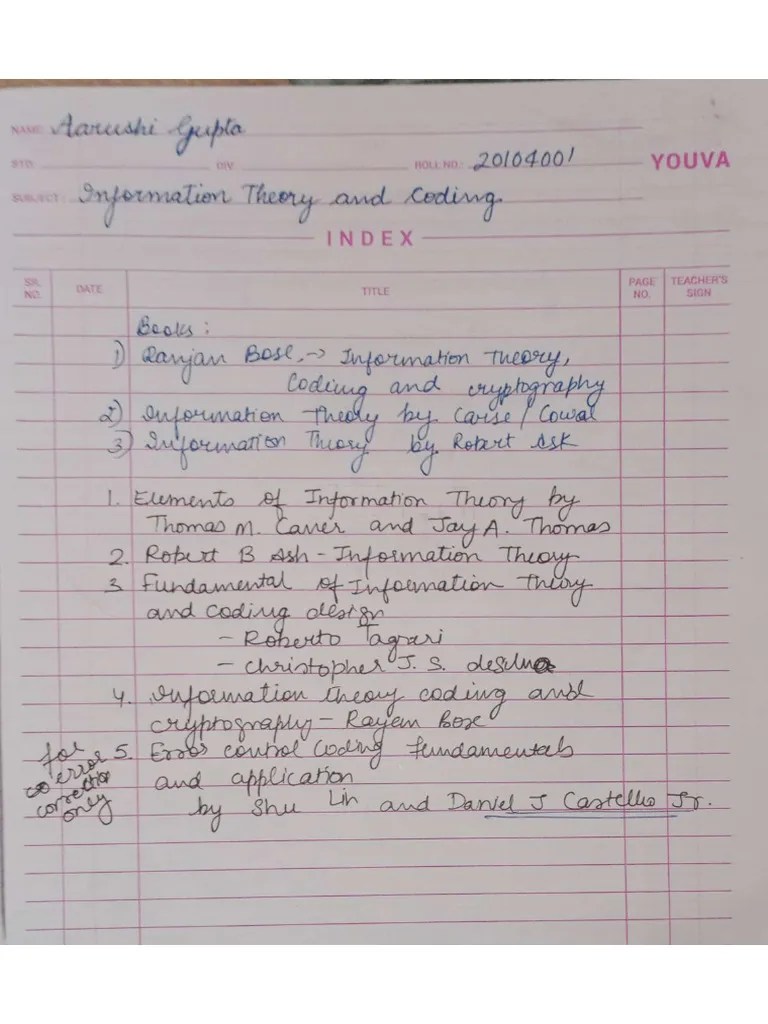 NAME: Aarushi Gupta
STD.: DIV. ROLL NO.: 20104001 YOUVA
SUBJECT: Information Theory and Coding
INDEX
SR. NO. DATE TITLE PAGE NO. TEACHER'S SIGN
Books:
1) Ranjan Bose, → Information Theory,
Coding and cryptography
2) Information Theory by Carse/Cowal
3) Information Theory by Robert Ask
1. Elements of Information Theory by
Thomas M. Caner and Jay A. Thomas
2. Robert B Ash - Information Theory
3 Fundamental of Information Theory
and coding design
- Roberto Tagrari
- Christopher J. S. desilva
4. Information theory coding and
cryptography - Rayean Bose
5. Error control coding fundamentals
and application
by Shu Lin and Daniel J Castello Jr.
for
error
correction
only